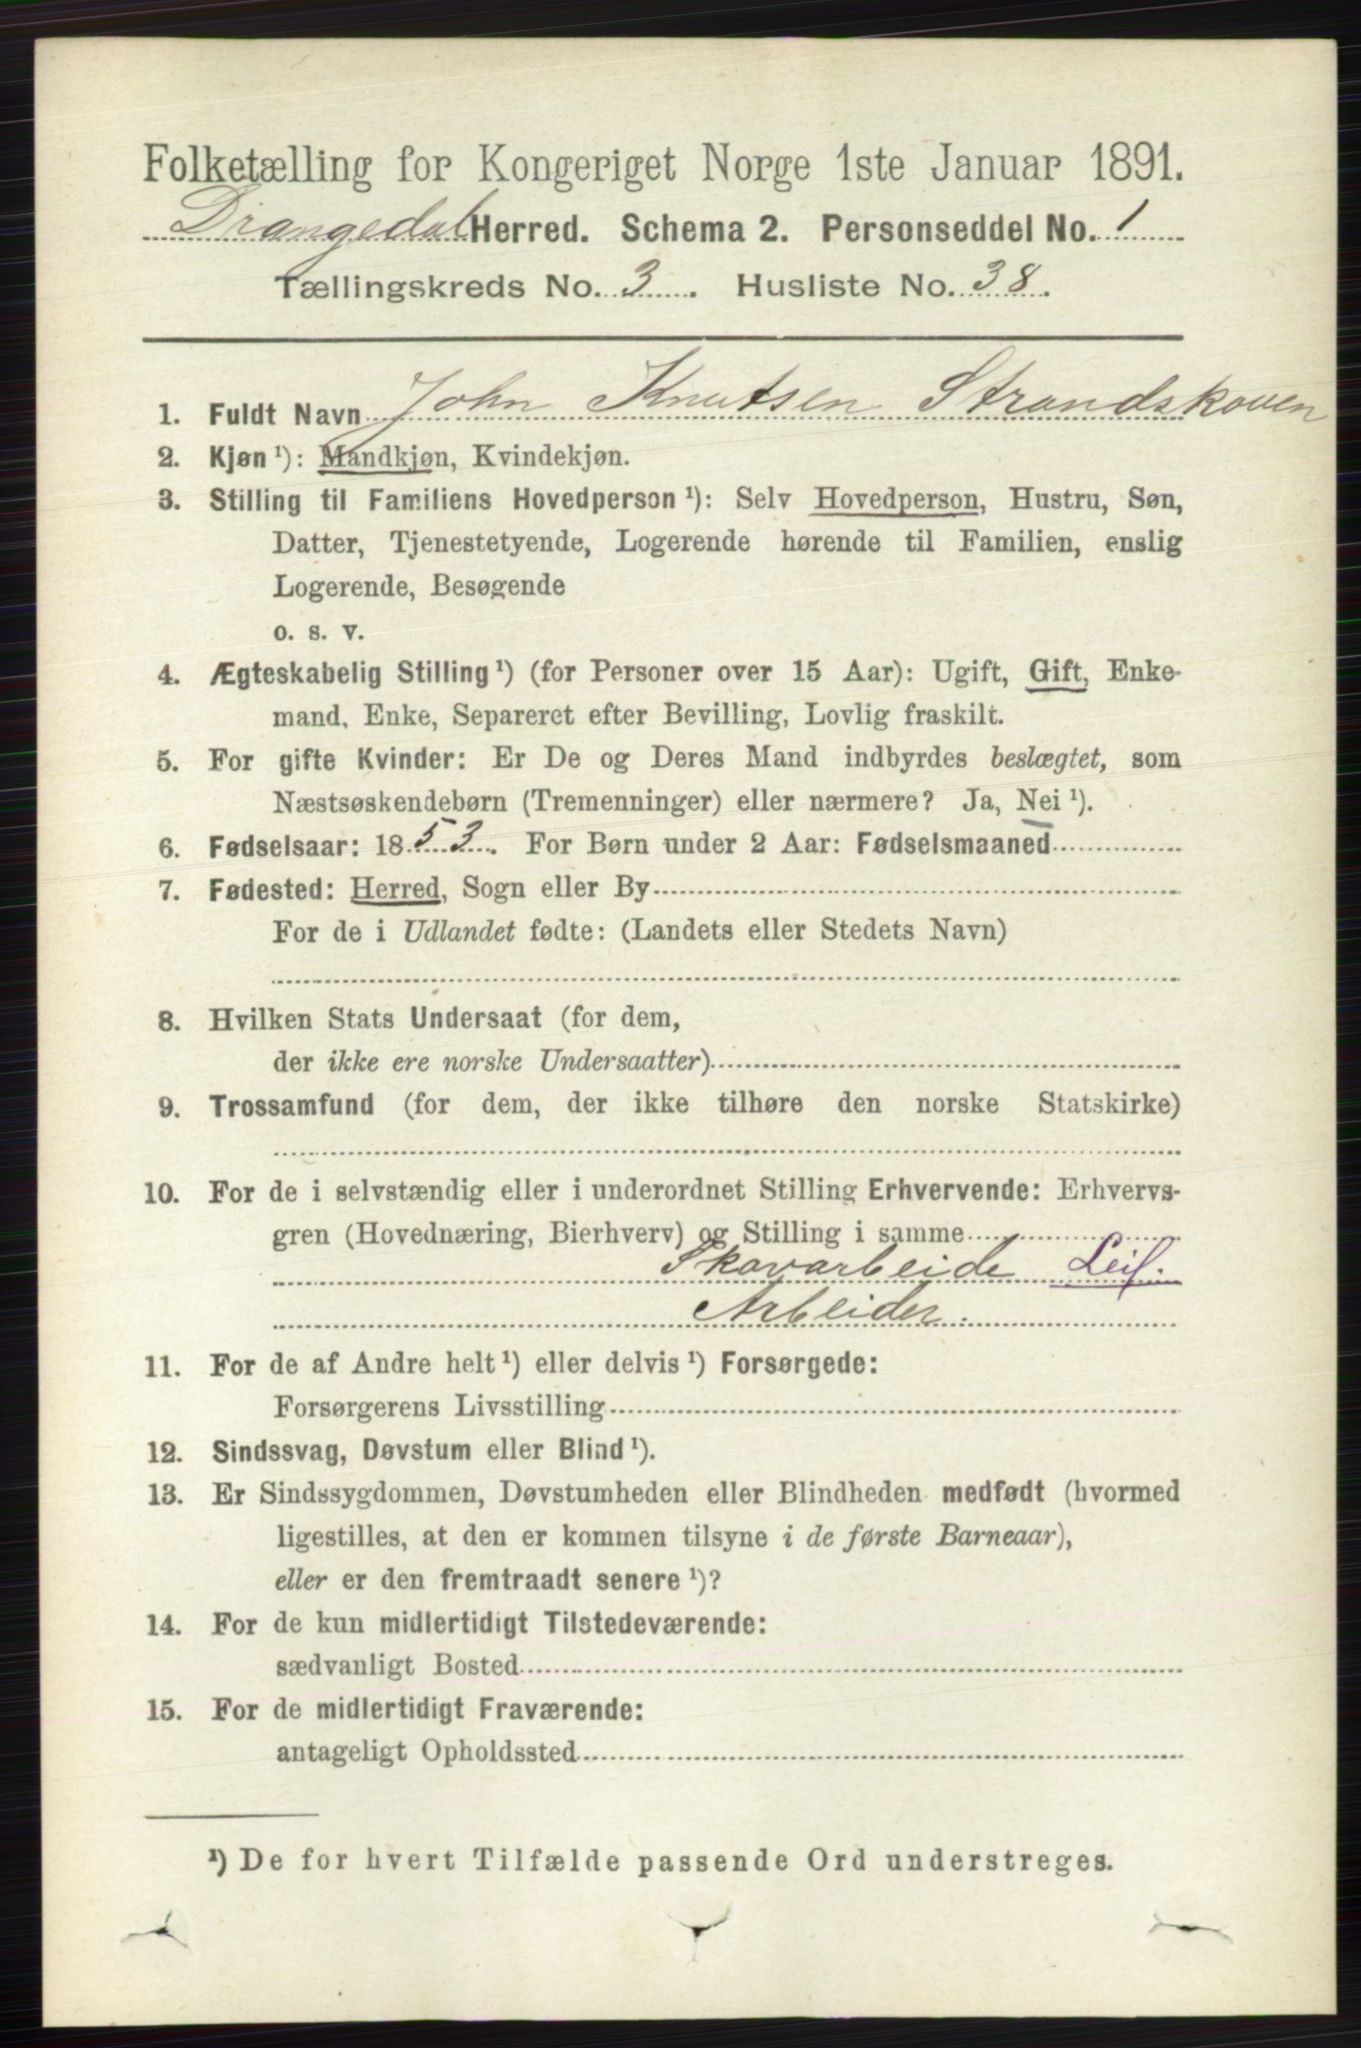 Folketælling for Kongeriget Norge 1ste Januar 1891.
Drangedal Herred. Schema 2. Personseddel No. 1
Tællingskreds No. 3. Husliste No. 38.
1. Fuldt Navn John Knutsen Strandskoven
2. Kjøn ¹): Mandkjøn, Kvindekjøn.
3. Stilling til Familiens Hovedperson ¹): Selv Hovedperson, Hustru, Søn,
Datter, Tjenestetyende, Logerende hørende til Familien, enslig
Logerende, Besøgende
o. s. v.
4. Ægteskabelig Stilling ¹) (for Personer over 15 Aar): Ugift, Gift, Enke-
mand, Enke, Separeret efter Bevilling, Lovlig fraskilt.
5. For gifte Kvinder: Er De og Deres Mand indbyrdes beslægtet, som
Næstsøskendebørn (Tremenninger) eller nærmere? Ja, Nei ¹).
6. Fødselsaar: 1853. For Børn under 2 Aar: Fødselsmaaned
7. Fødested: Herred, Sogn eller By
For de i Udlandet fødte: (Landets eller Stedets Navn)
8. Hvilken Stats Undersaat (for dem,
der ikke ere norske Undersaatter)
9. Trossamfund (for dem, der ikke tilhøre den norske Statskirke)
10. For de i selvstændig eller i underordnet Stilling Erhvervende: Erhvervs-
gren (Hovednæring, Bierhverv) og Stilling i samme
Skovarbeide Leil.
Arbeider.
11. For de af Andre helt ¹) eller delvis ¹) Forsørgede:
Forsørgerens Livsstilling
12. Sindssvag, Døvstum eller Blind ¹).
13. Er Sindssygdommen, Døvstumheden eller Blindheden medfødt (hvormed
ligestilles, at den er kommen tilsyne i de første Barneaar),
eller er den fremtraadt senere ¹)?
14. For de kun midlertidigt Tilstedeværende:
sædvanligt Bosted
15. For de midlertidigt Fraværende:
antageligt Opholdssted
¹) De for hvert Tilfælde passende Ord understreges.